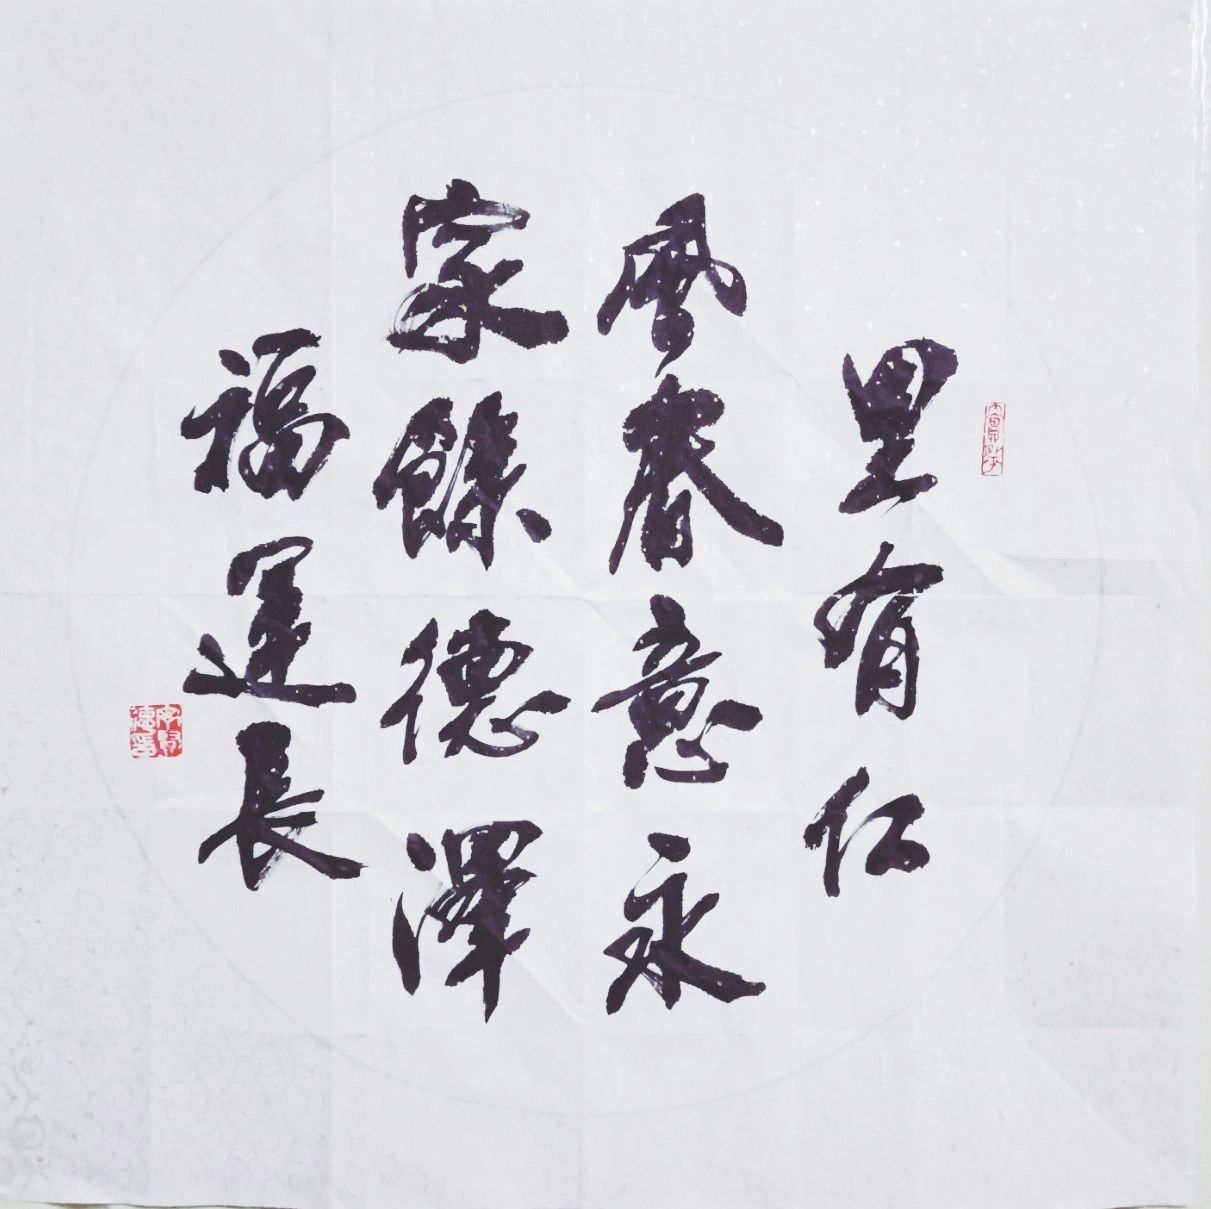 里有仁
風春意永
家餘德澤
福運長